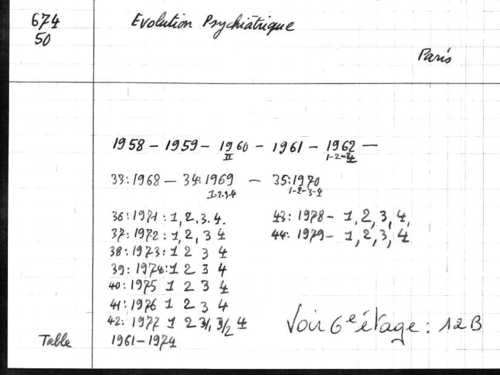 674
50
Evolution Psychiatrique
Paris
1958 - 1959 - 1960 - 1961 - 1962 -
II 1-2-34
33:1968 - 34:1969 - 35:1970
1.2.3.4 1-2-3-4
36:1971:1,2.3.4. 43:1978- 1,2,3,4,
37:1972:1,2,3 4 44:1979- 1,2,3,4
38:1973:1 2 3 4
39:1974:1 2 3 4
40:1975 1 2 3 4
41:1976 1 2 3 4
42:1977 1 2 3/1, 3/2 4
Voir 6e étage: 12B
Table 1961-1974